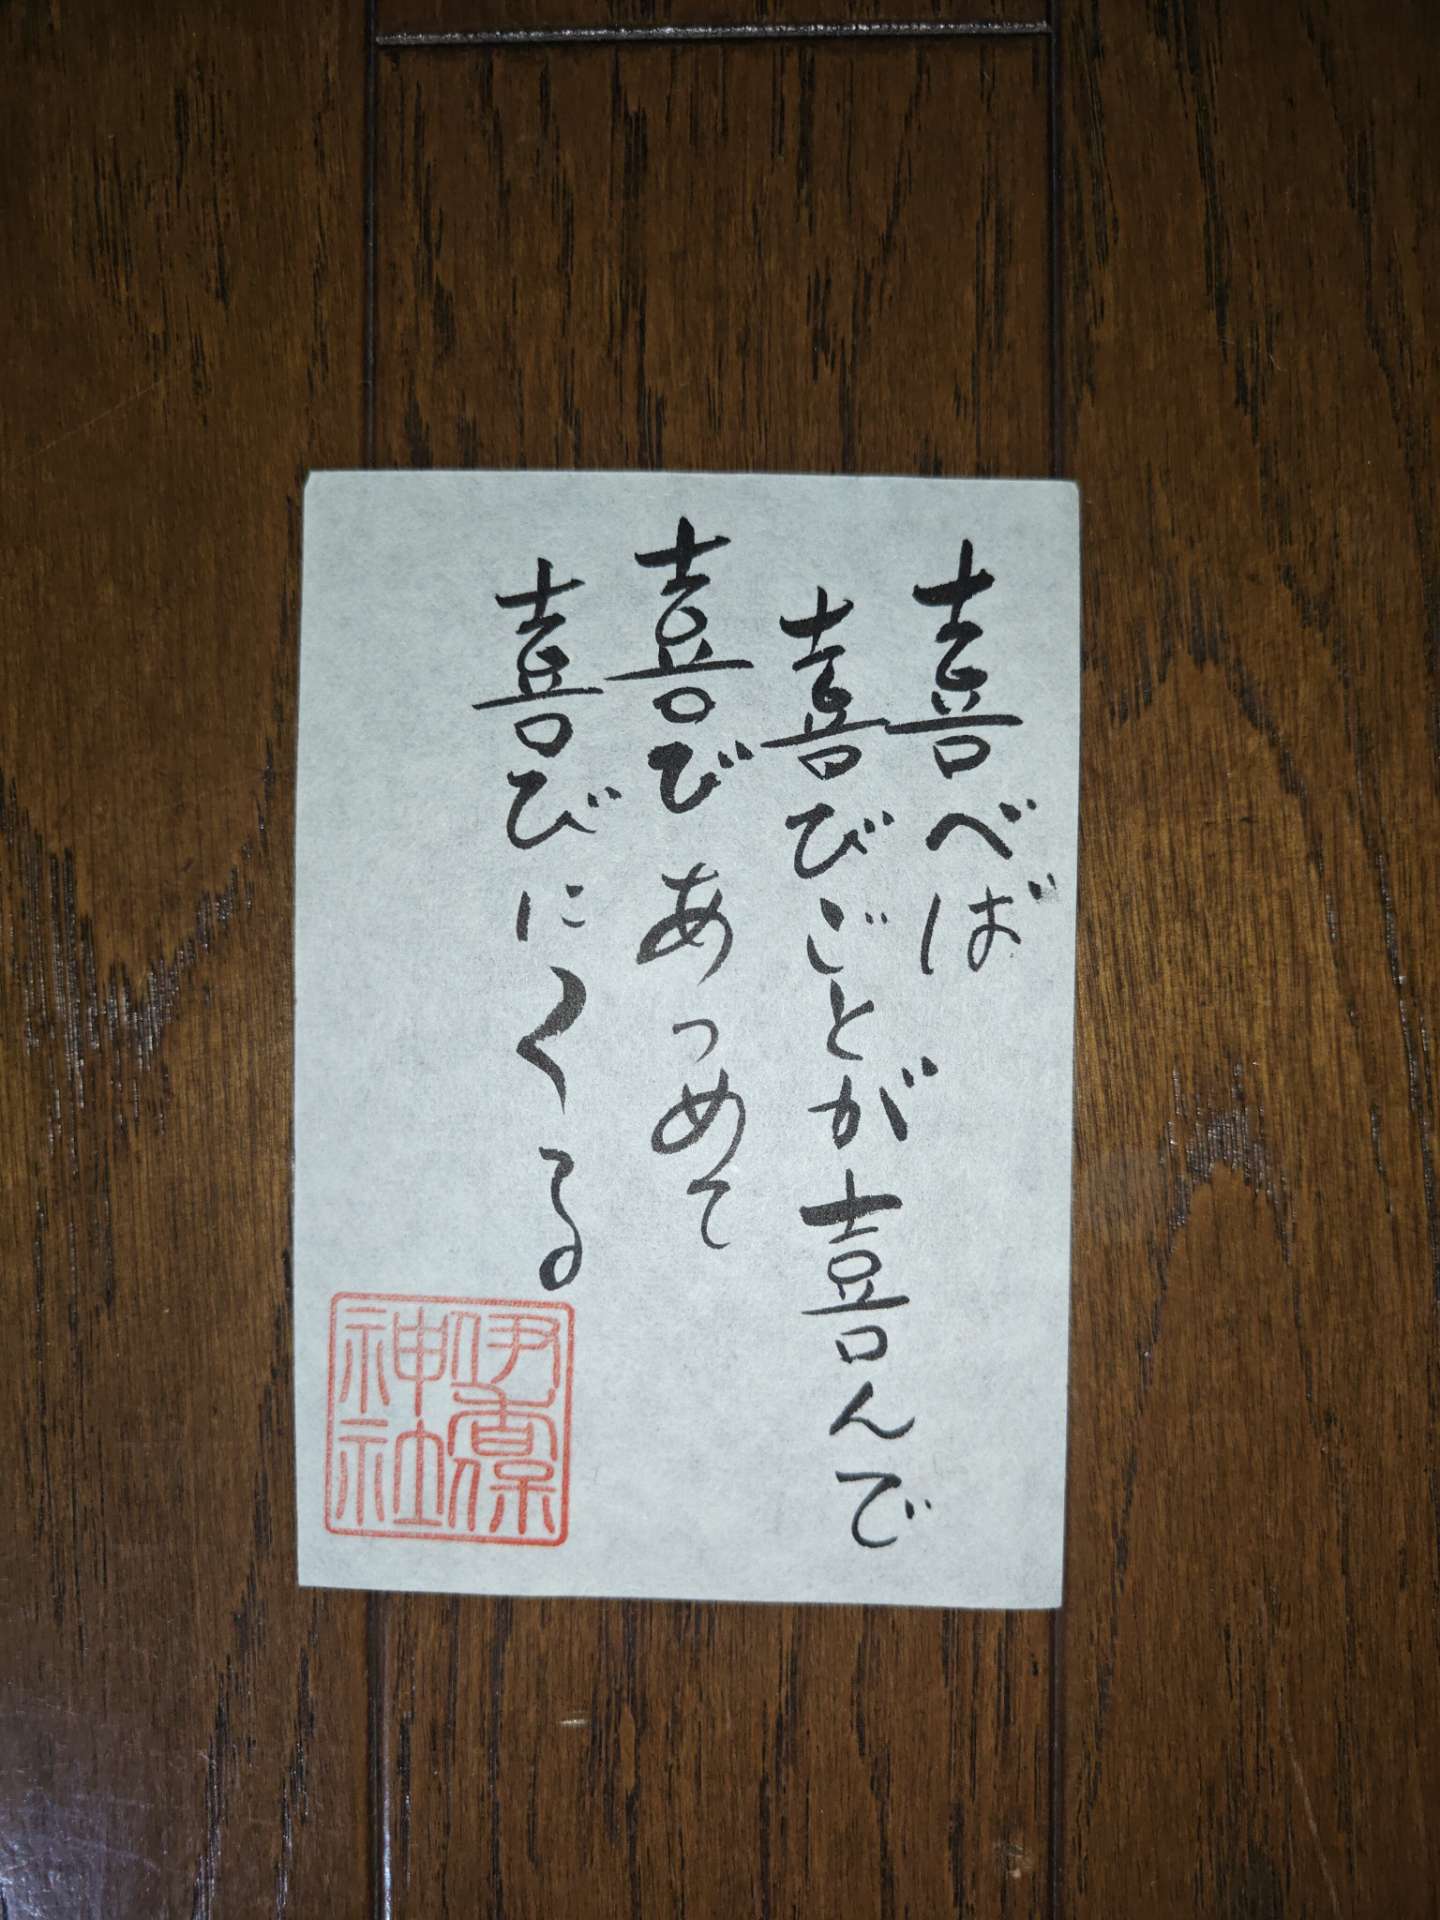 喜べば
喜びごとが喜んで
喜びあつめて
喜びにくる
伊奈
神社